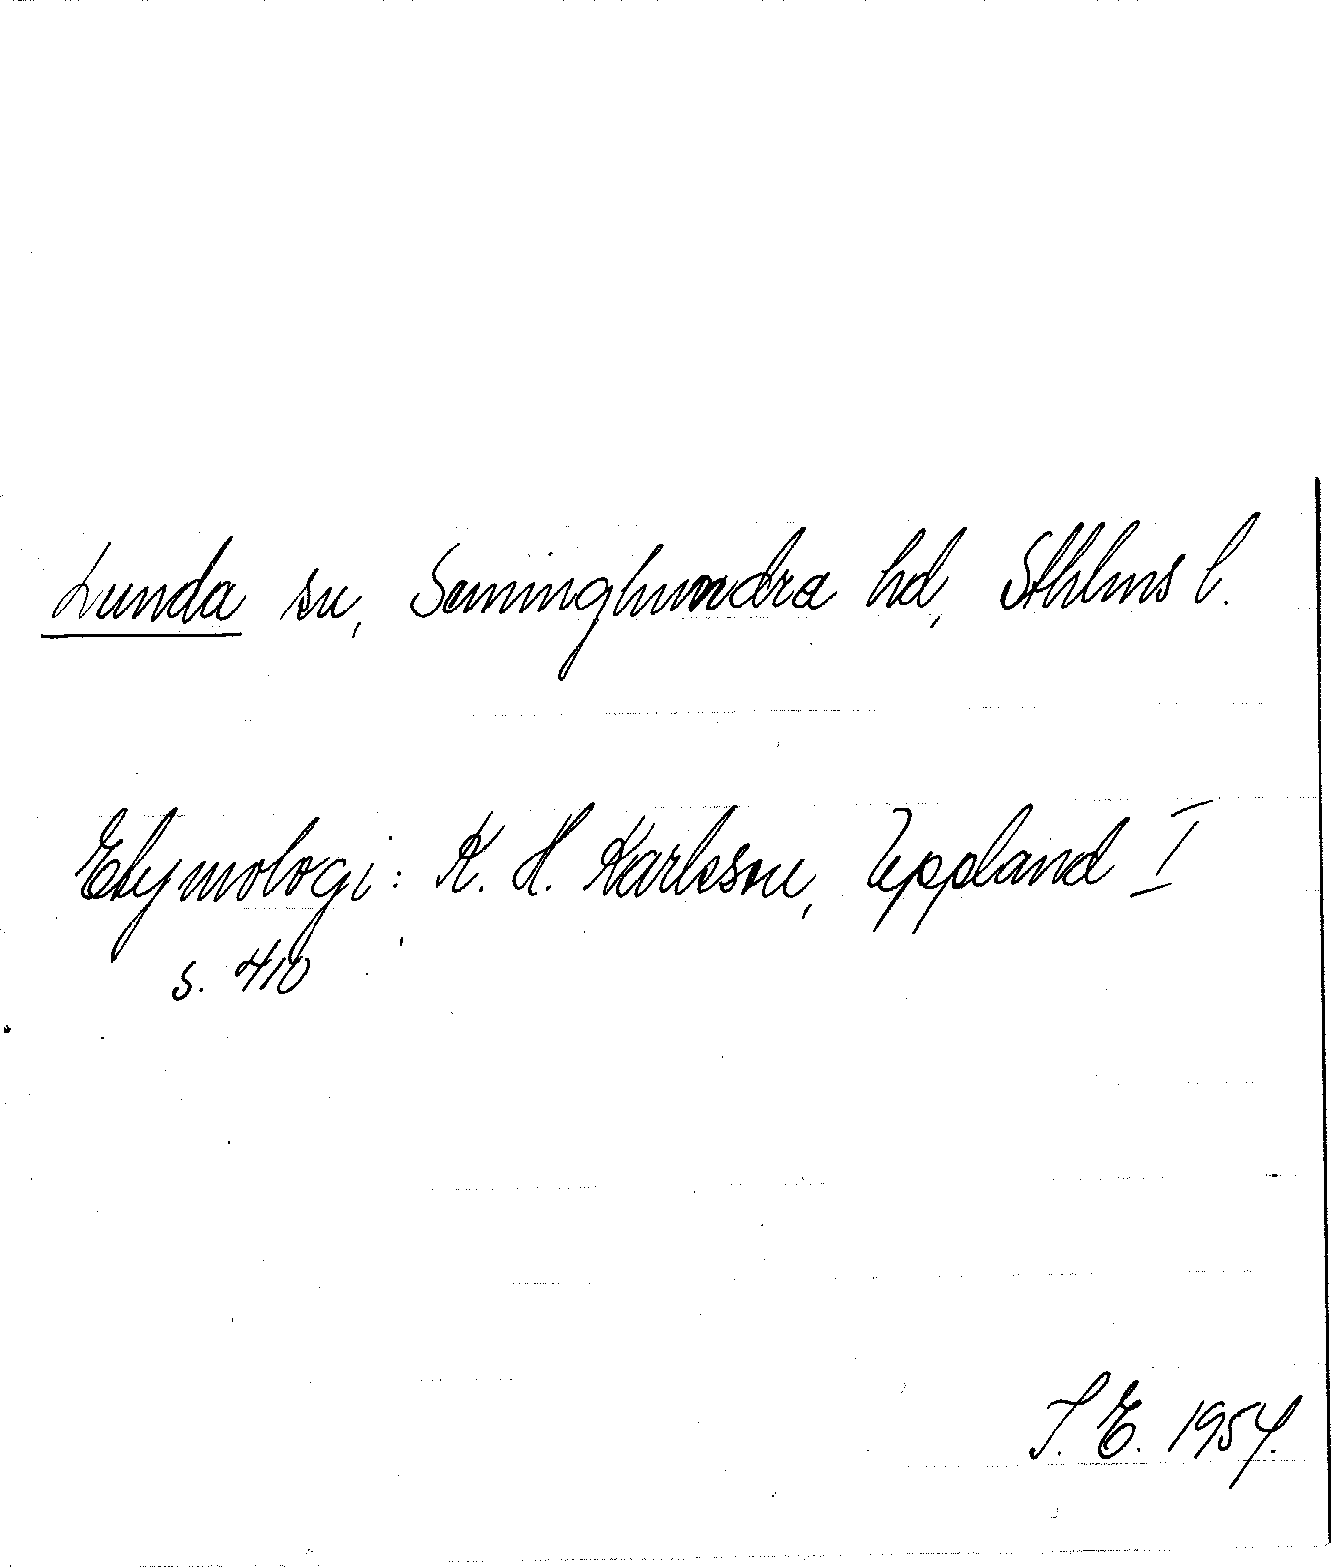 Lunda sn, Seminghundra hd, Sthlms l.
Etymologi: K. H. Karlsson, Uppland I
s. 410
S. E. 1954.